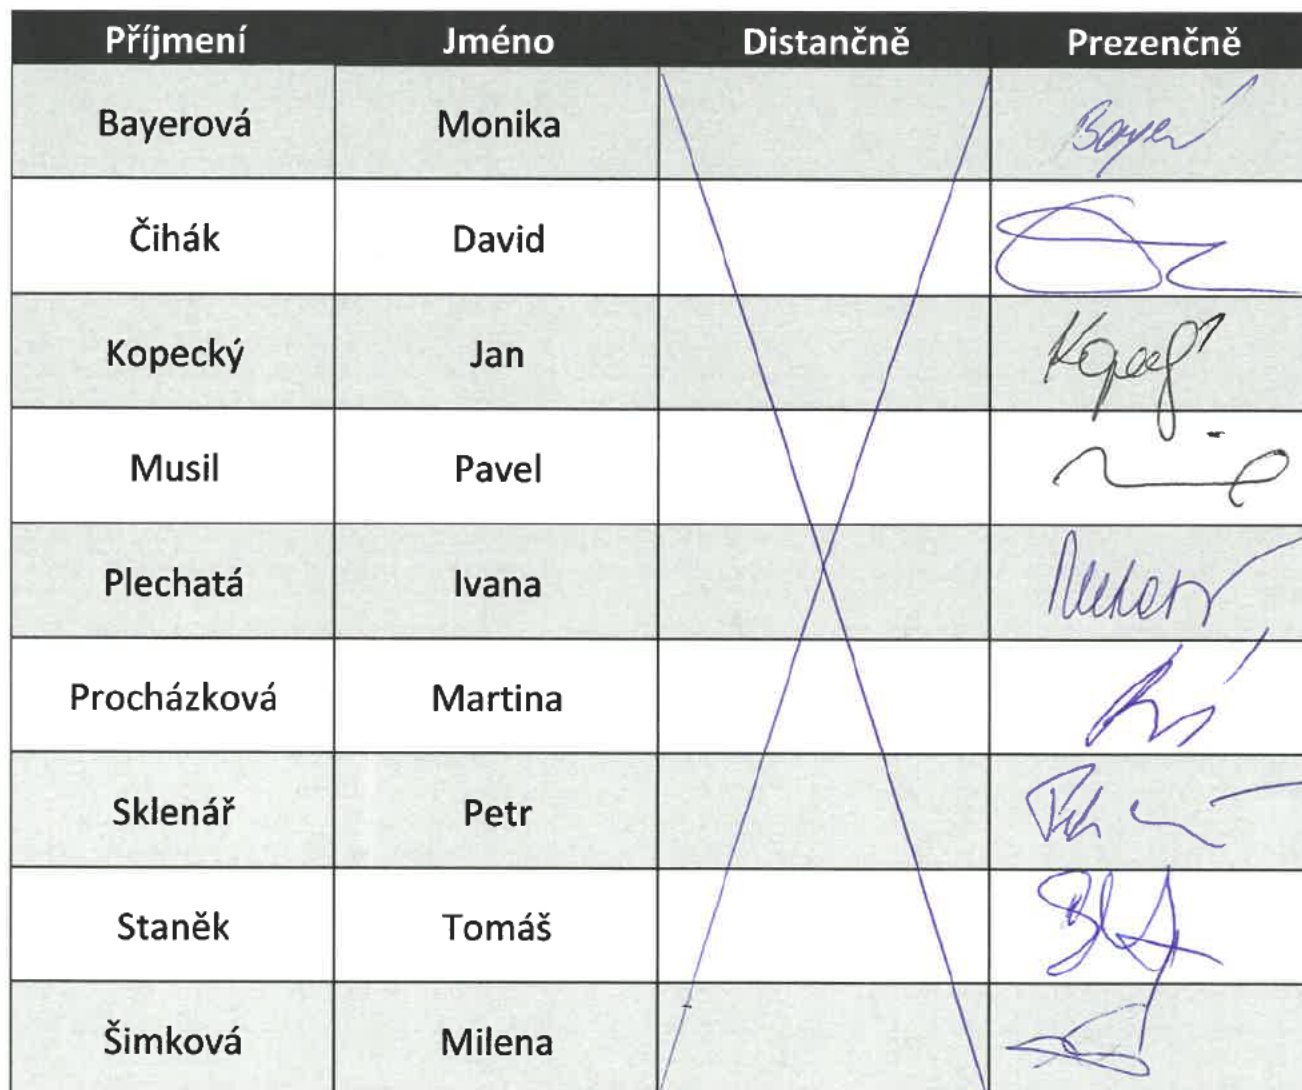 Příjmení Jméno Distančně Prezenčně
Bayerová Monika
Čihák David
Kopecký Jan
Musil Pavel
Plechatá Ivana
Procházková Martina
Sklenář Petr
Staněk Tomáš
Šimková Milena